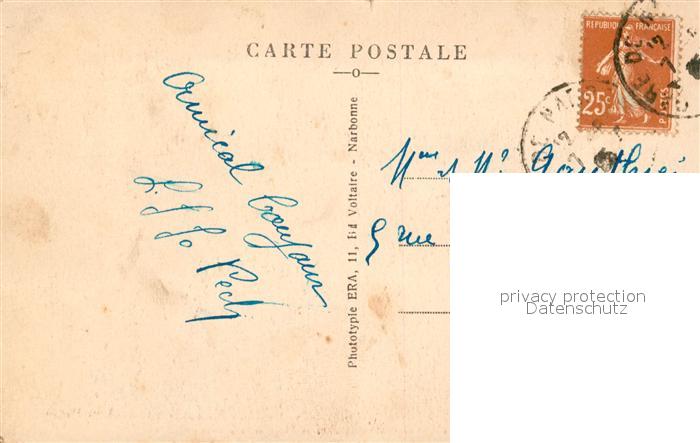 CARTE POSTALE
REPUBLIQUE FRANÇAISE
25c
POSTES
Amical bonjour
Pech
Phototypie ERA, 11, Bd Voltaire - Narbonne
Mme et Mr Gauthier
5 rue
privacy protection
Datenschutz